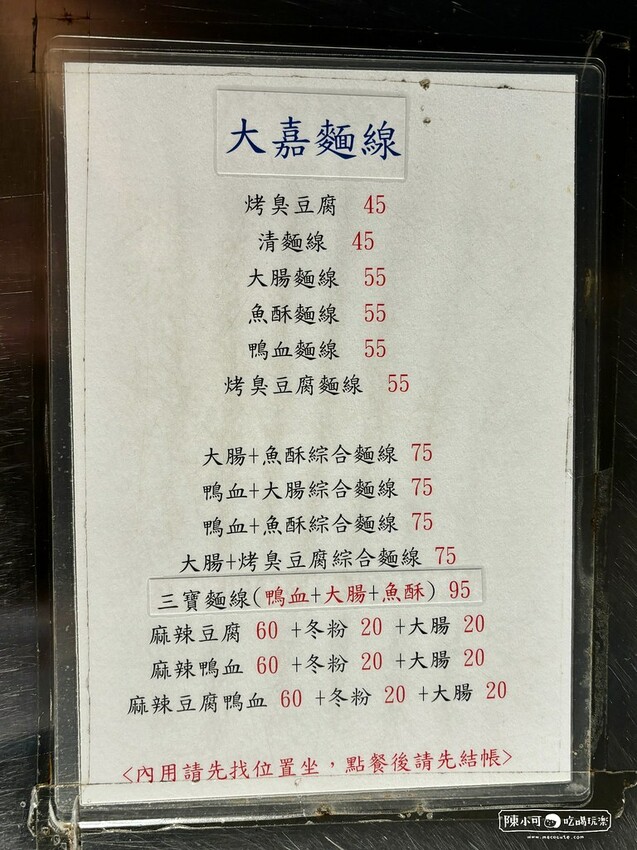 大嘉麵線
烤臭豆腐 45
清麵線 45
大腸麵線 55
魚酥麵線 55
鴨血麵線 55
烤臭豆腐麵線 55
大腸+魚酥綜合麵線 75
鴨血+大腸綜合麵線 75
鴨血+魚酥綜合麵線 75
大腸+烤臭豆腐綜合麵線 75
三寶麵線(鴨血+大腸+魚酥) 95
麻辣豆腐 60 +冬粉 20 +大腸 20
麻辣鴨血 60 +冬粉 20 +大腸 20
麻辣豆腐鴨血 60 +冬粉 20 +大腸 20
<內用請先找位置坐，點餐後請先結帳>
陳小可 吃喝玩樂
www.mecocute.com